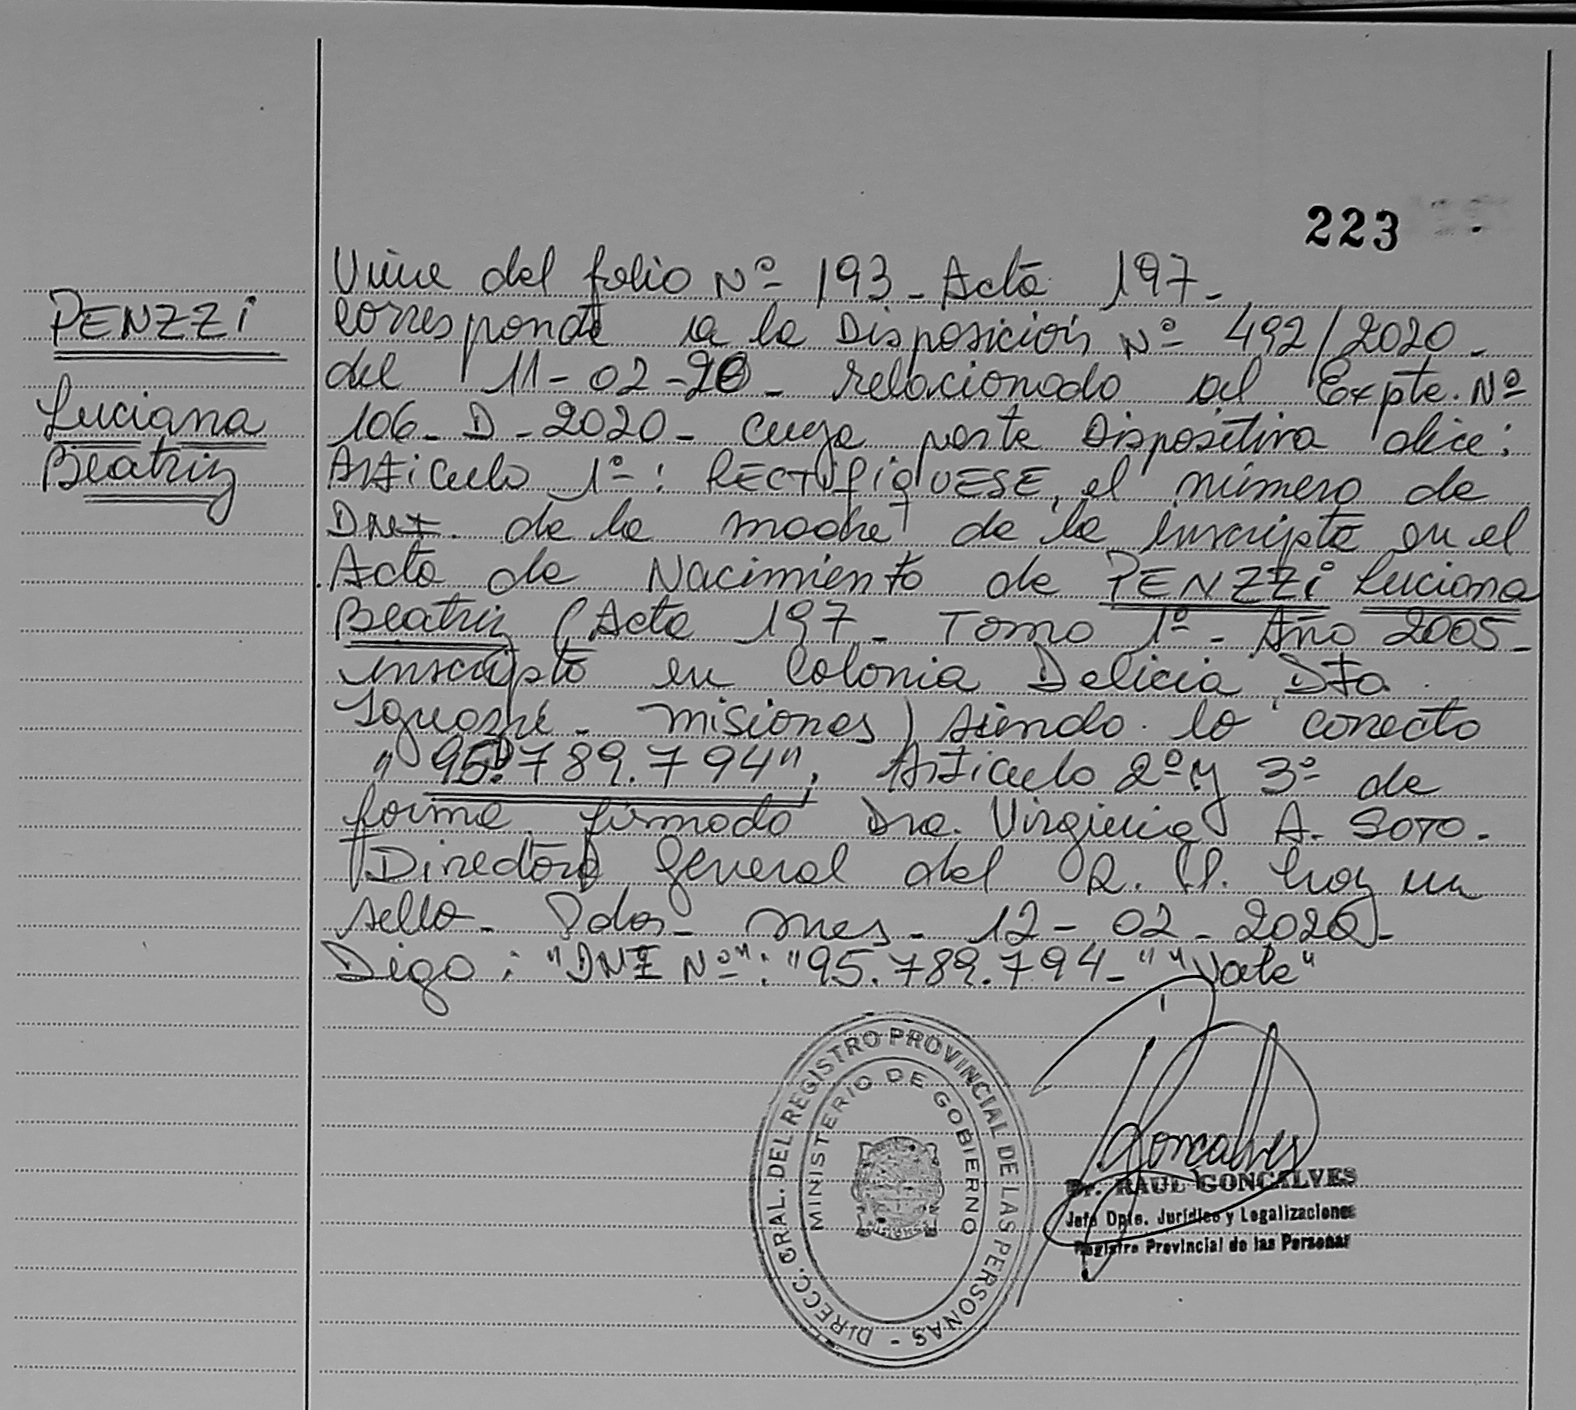 223
PENZZi
Luciana
Beatriz
Viene del folio Nº 193 - Acta 197 -
corresponde a la Disposición Nº 492/2020 -
del 11-02-20 - relacionado al Expte. Nº
106 - D - 2020 - cuya parte Dispositiva dice:
Articulo 1º: RECTIFIQUESE, el número de
DNI. de la madre de la inscripta en el
Acta de Nacimiento de PENZZi Luciana
Beatriz (Acta 197 - Tomo 1º - Año 2005 -
inscripta en Colonia Delicia Dto.
Iguazú - misiones) siendo lo correcto
"95.789.794", Articulo 2º y 3º de
forma firmado Dra. Virginia A. SOTO -
Directora General del R. P. hay un
sello - Pdas - mnes - 12 - 02 - 2020 -
Digo: "DNI Nº": "95.789.794 - " "Vale"
DIRECC. GRAL. DEL REGISTRO PROVINCIAL DE LAS PERSONAS -
MINISTERIO DE GOBIERNO
Goncalves
Dr. RAUL GONCALVES
Jefe Dpto. Jurídico y Legalizaciones
Registro Provincial de las Personas